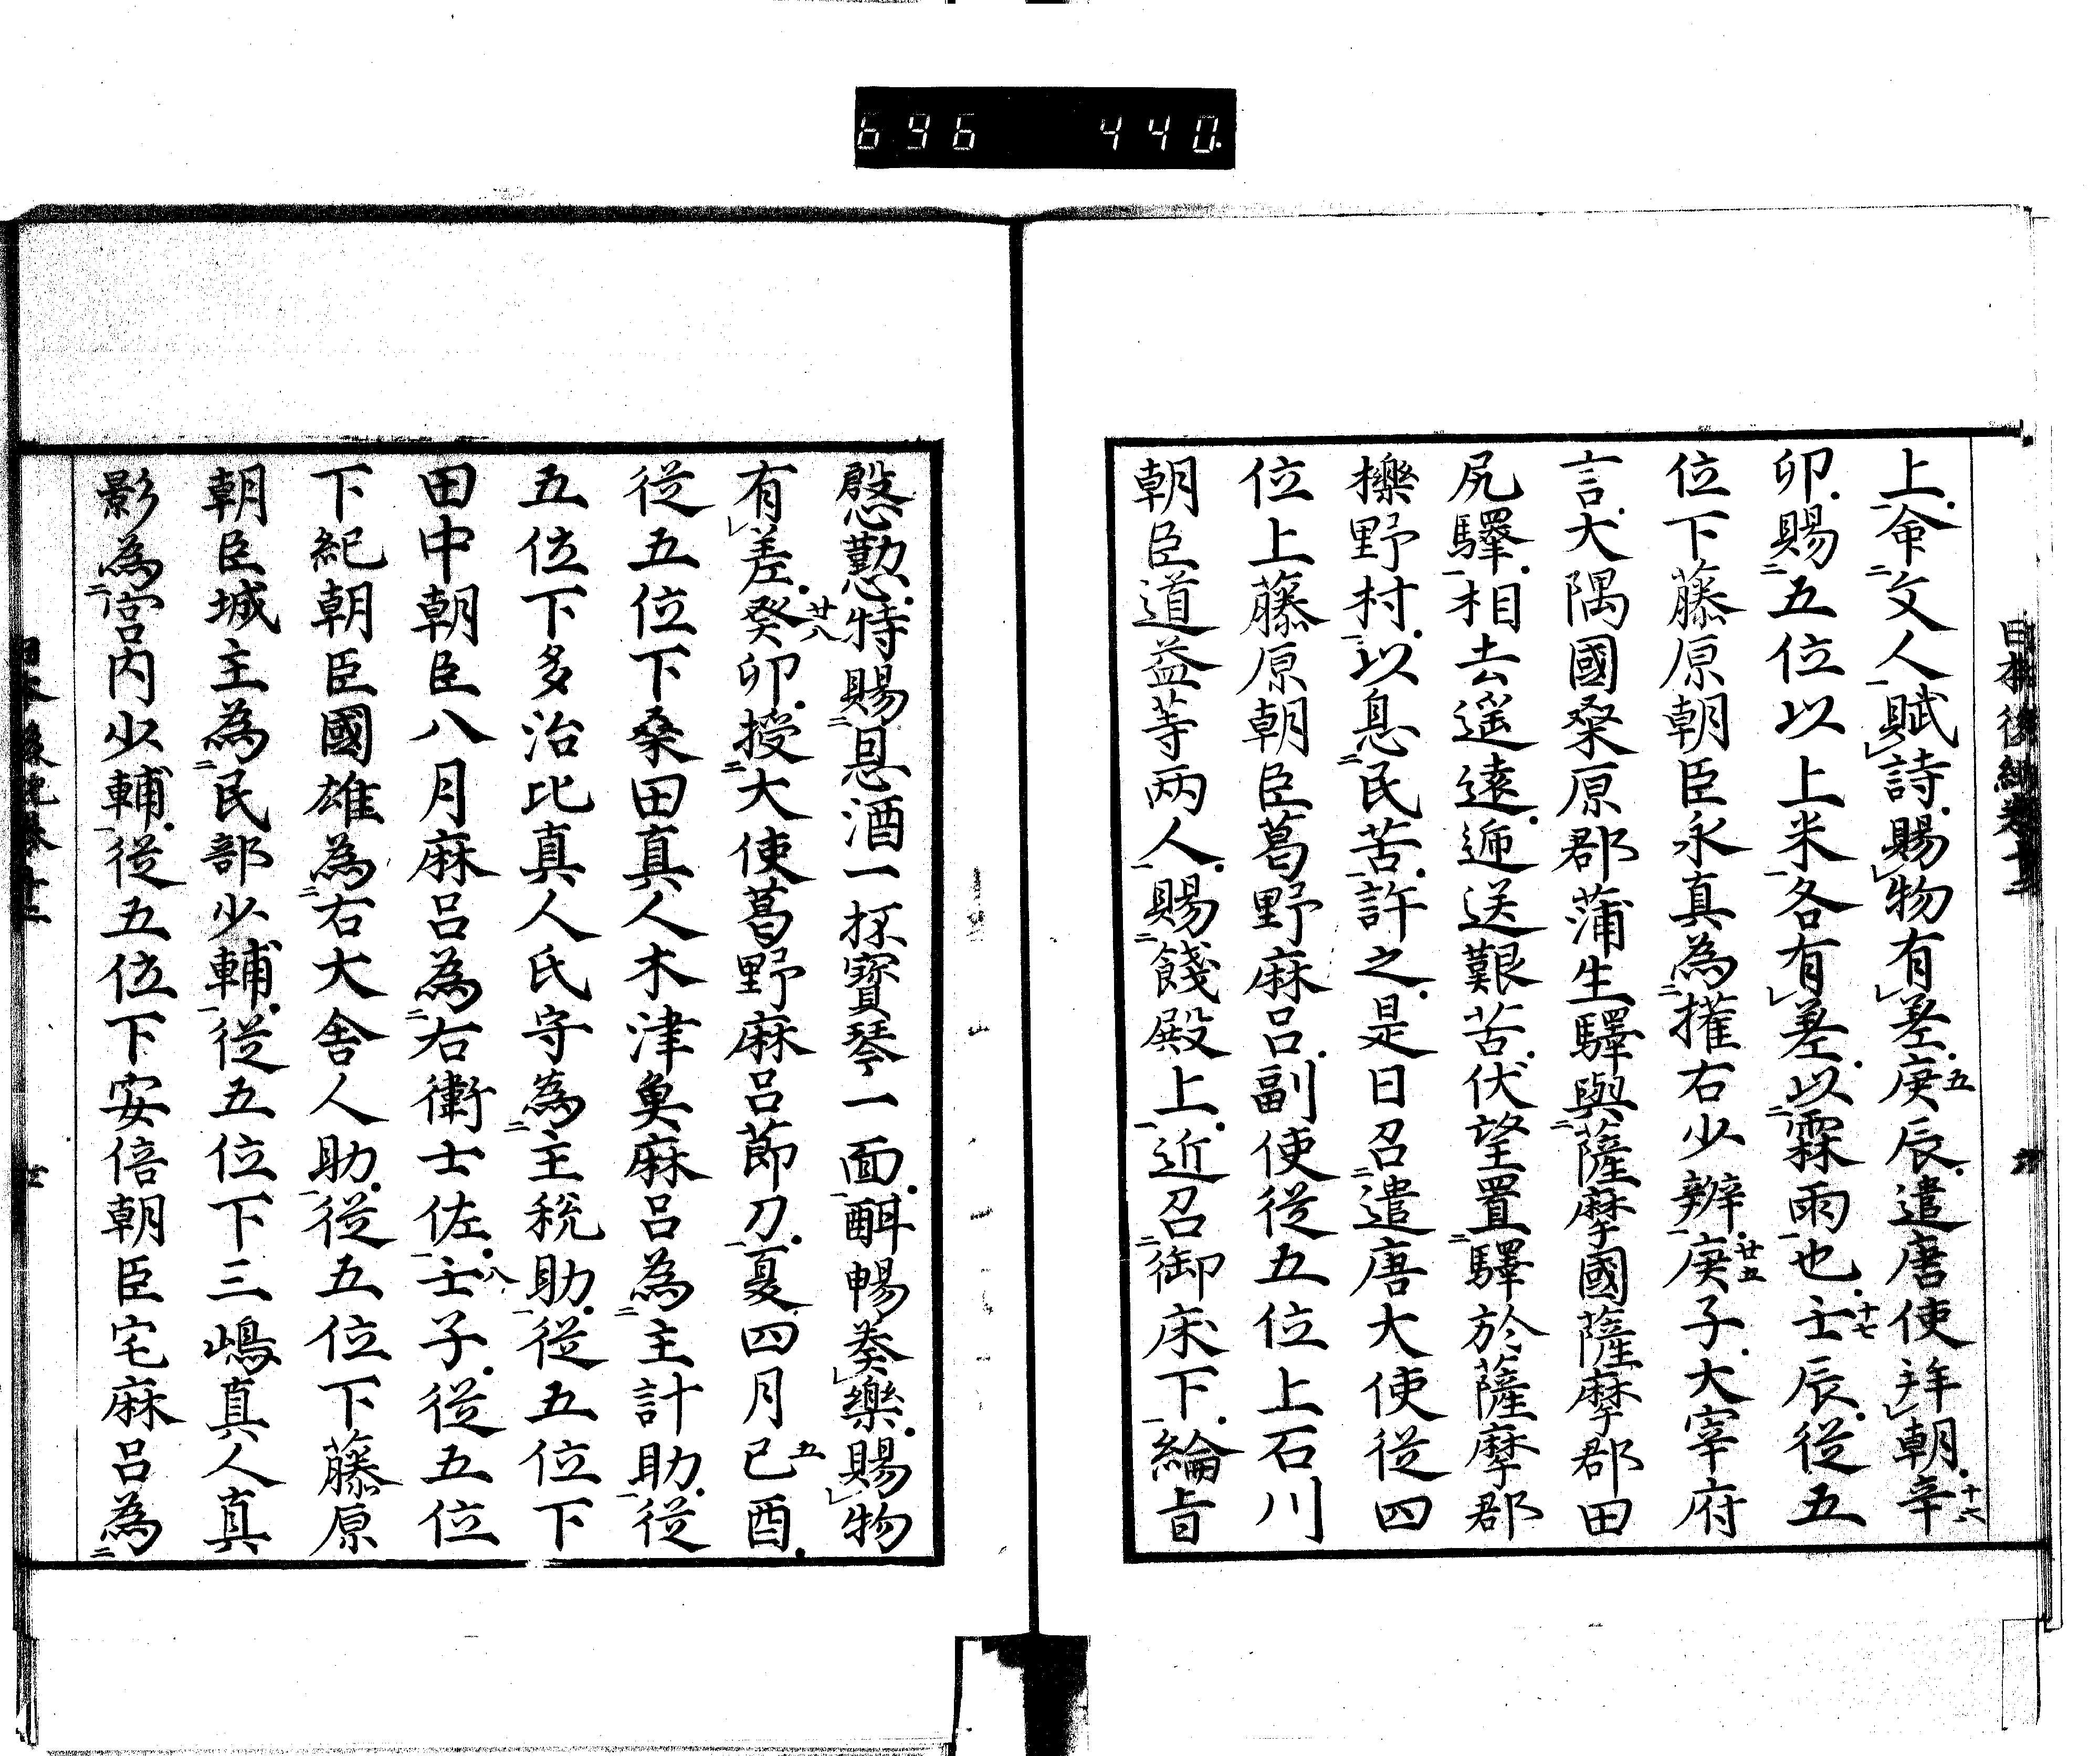 696 440
日本後紀卷十二
上命文人賦詩賜物有差庚辰遣唐使拜朝辛
卯賜五位以上米各有差以霖雨也壬辰從五
位下藤原朝臣永真為權右少辨庚子大宰府
言大隅國桑原郡蒲生驛與薩摩國薩摩郡田
尻驛相去遥遠逓送艱苦伏望置驛於薩摩郡
櫟野村以息民苦許之是日召遣唐大使從四
位上藤原朝臣葛野麻呂副使從五位上石川
朝臣道益等两人賜餞殿上近召御床下綸旨
慇懃特賜恩酒一坏寳琴一面酣暢奏樂賜物
有差癸卯授大使葛野麻呂節刀夏四月己酉
從五位下桑田真人木津魚麻呂為主計助從
五位下多治比真人氏守為主稅助從五位下
田中朝臣八月麻呂為右衛士佐壬子從五位
下紀朝臣國雄為右大舎人助從五位下藤原
朝臣城主為民部少輔從五位下三嶋真人真
影為宮内少輔從五位下安倍朝臣宅麻呂為